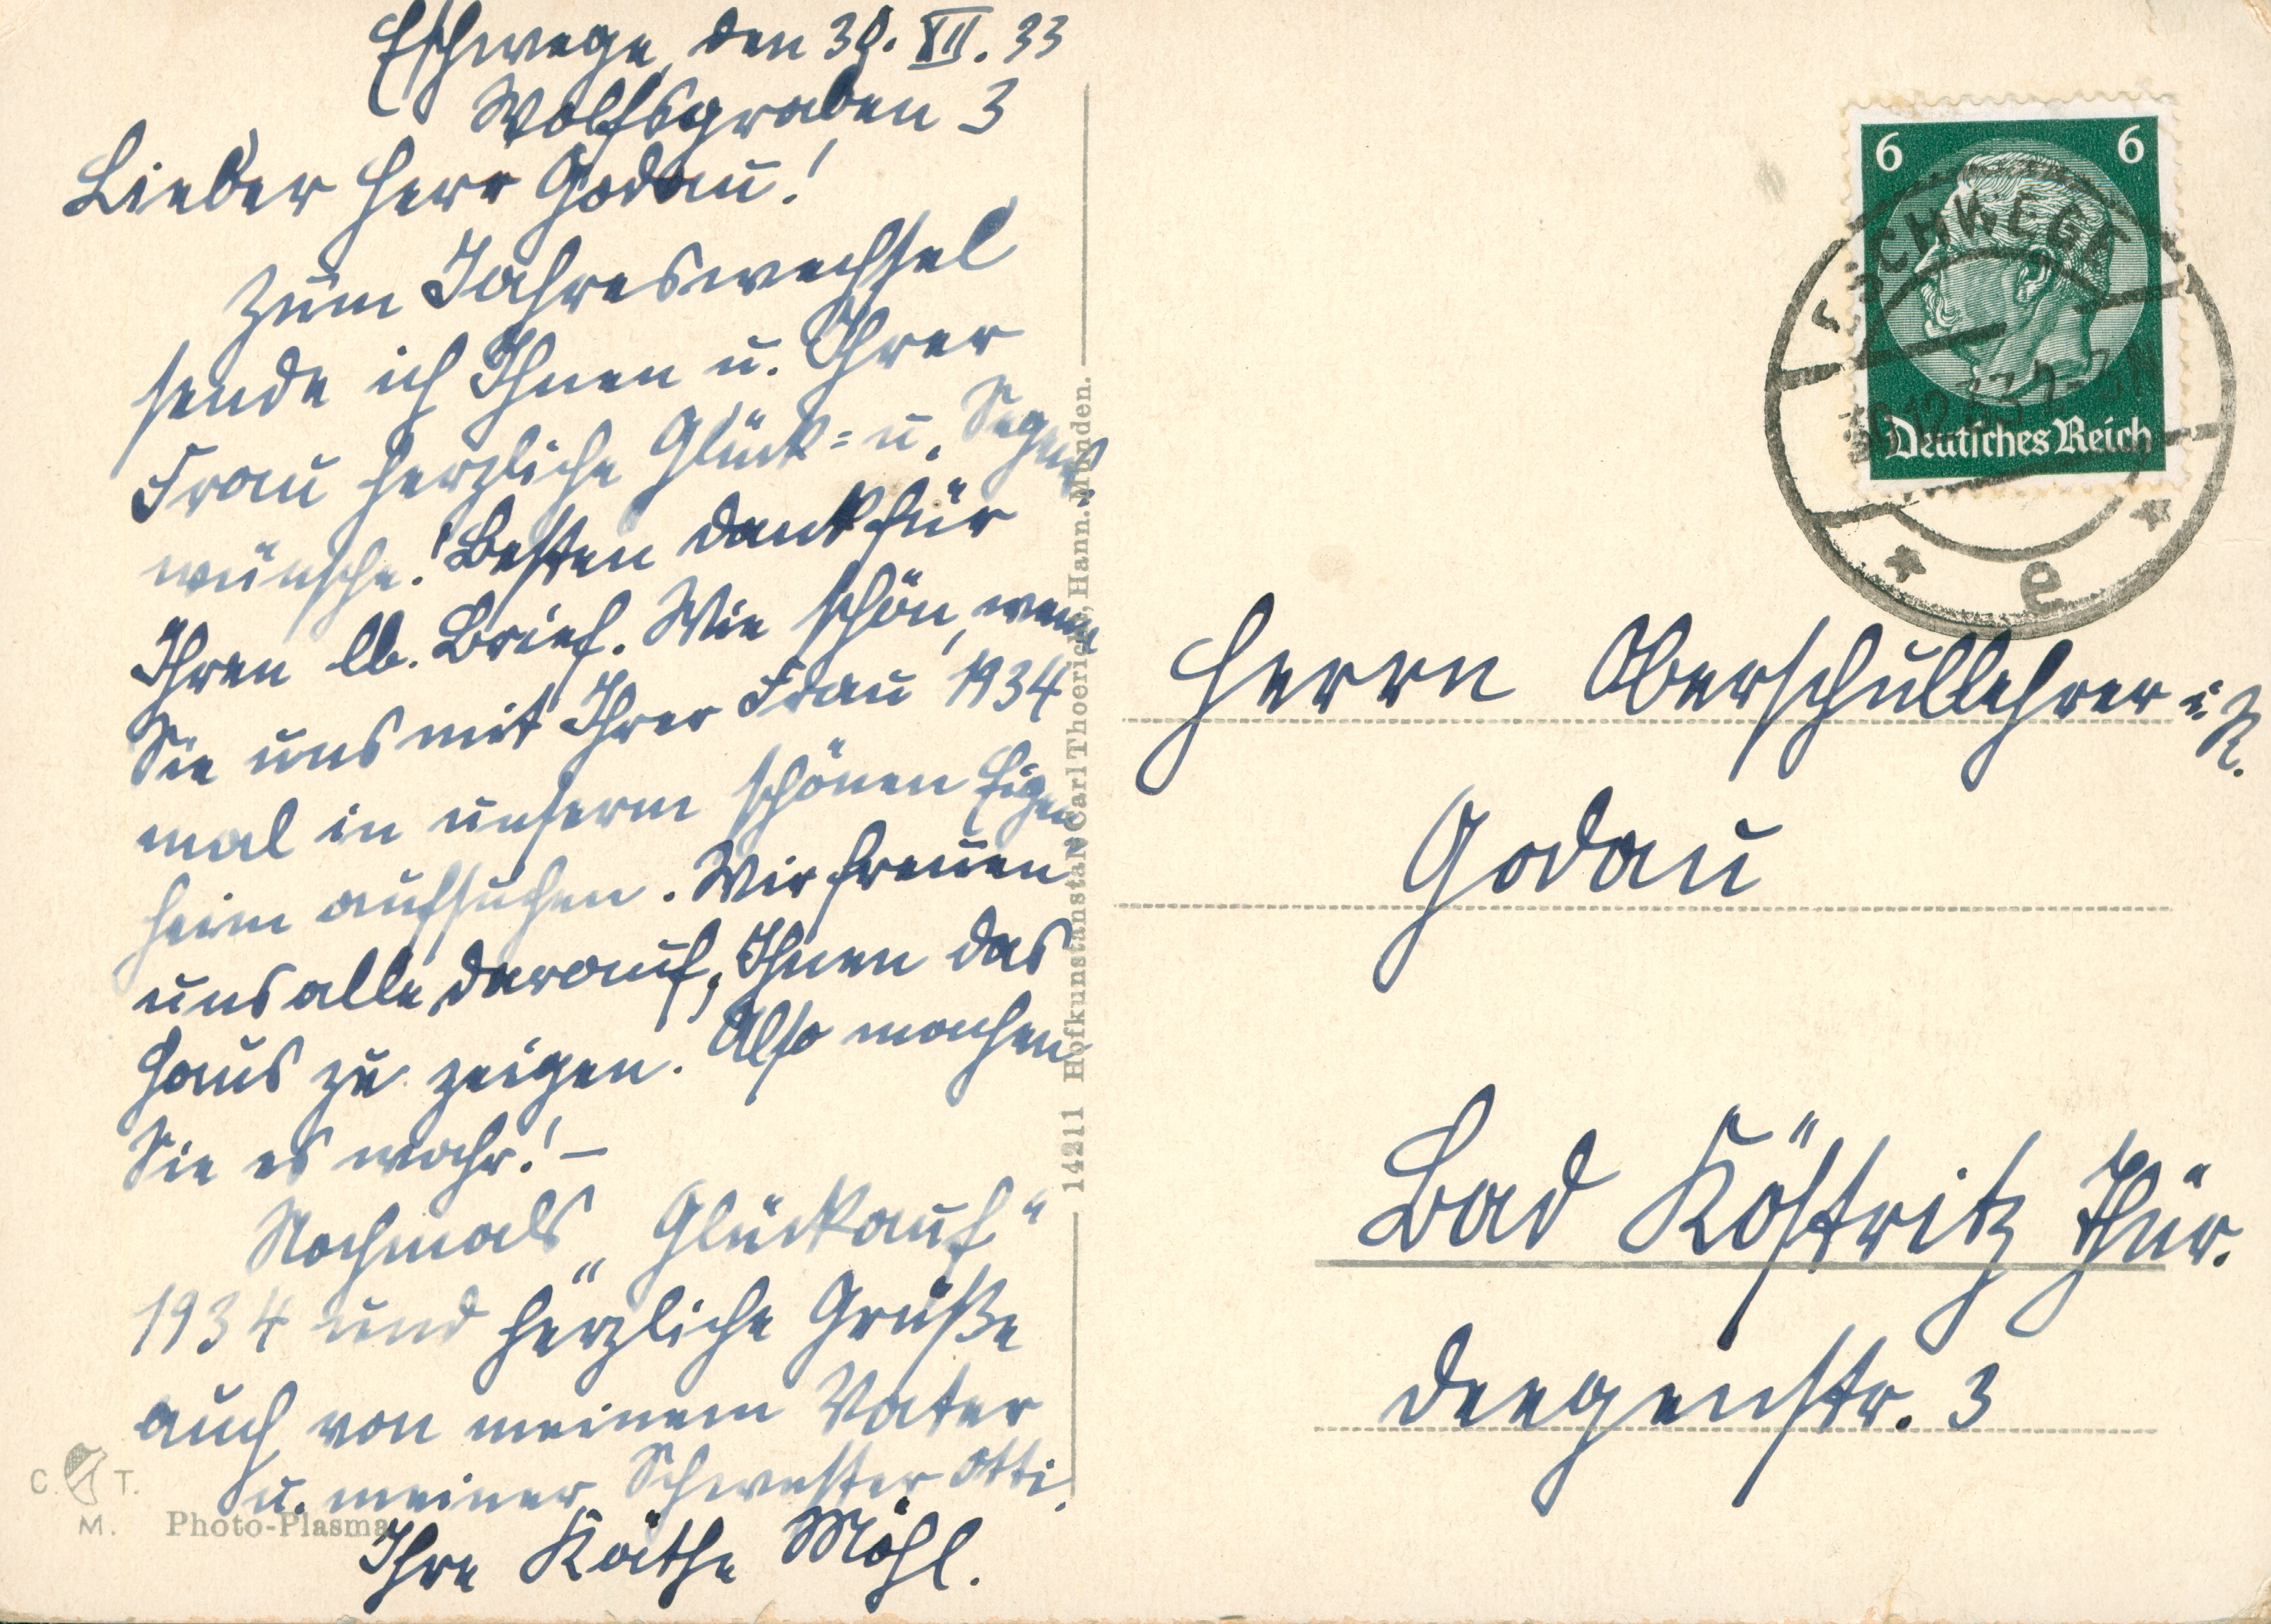 Eschwege, den 30. XII. 33
Wolfsgraben 3
Lieber Herr Godau!
Zum Jahreswechsel
sende ich Ihnen u. Ihrer
Frau herzliche Glück= u. Segens
wünsche! Besten Dank für
Ihren lb. Brief. Wie schön, wenn
Sie uns mit Ihrer Frau 1934
mal in unserm schönen Eigen
heim aufsuchen. Wir freuen
uns alle darauf, Ihnen das
Haus zu zeigen. Also machen
Sie es wahr! –
Nochmals „Glückauf“
1934 und herzliche Grüße
auch von meinem Vater
u. meiner Schwester Otti.
Ihre Käthe Möhl.
C. T.
M.
Photo-Plasma
14211 Hofkunstanstalt Carl Thoericht, Hann. Münden.
6 6
Deutsches Reich
ESCHWEGE
e
Herrn Oberschullehrer i. R.
Godau
Bad Köstritz Thür.
Deegenstr. 3